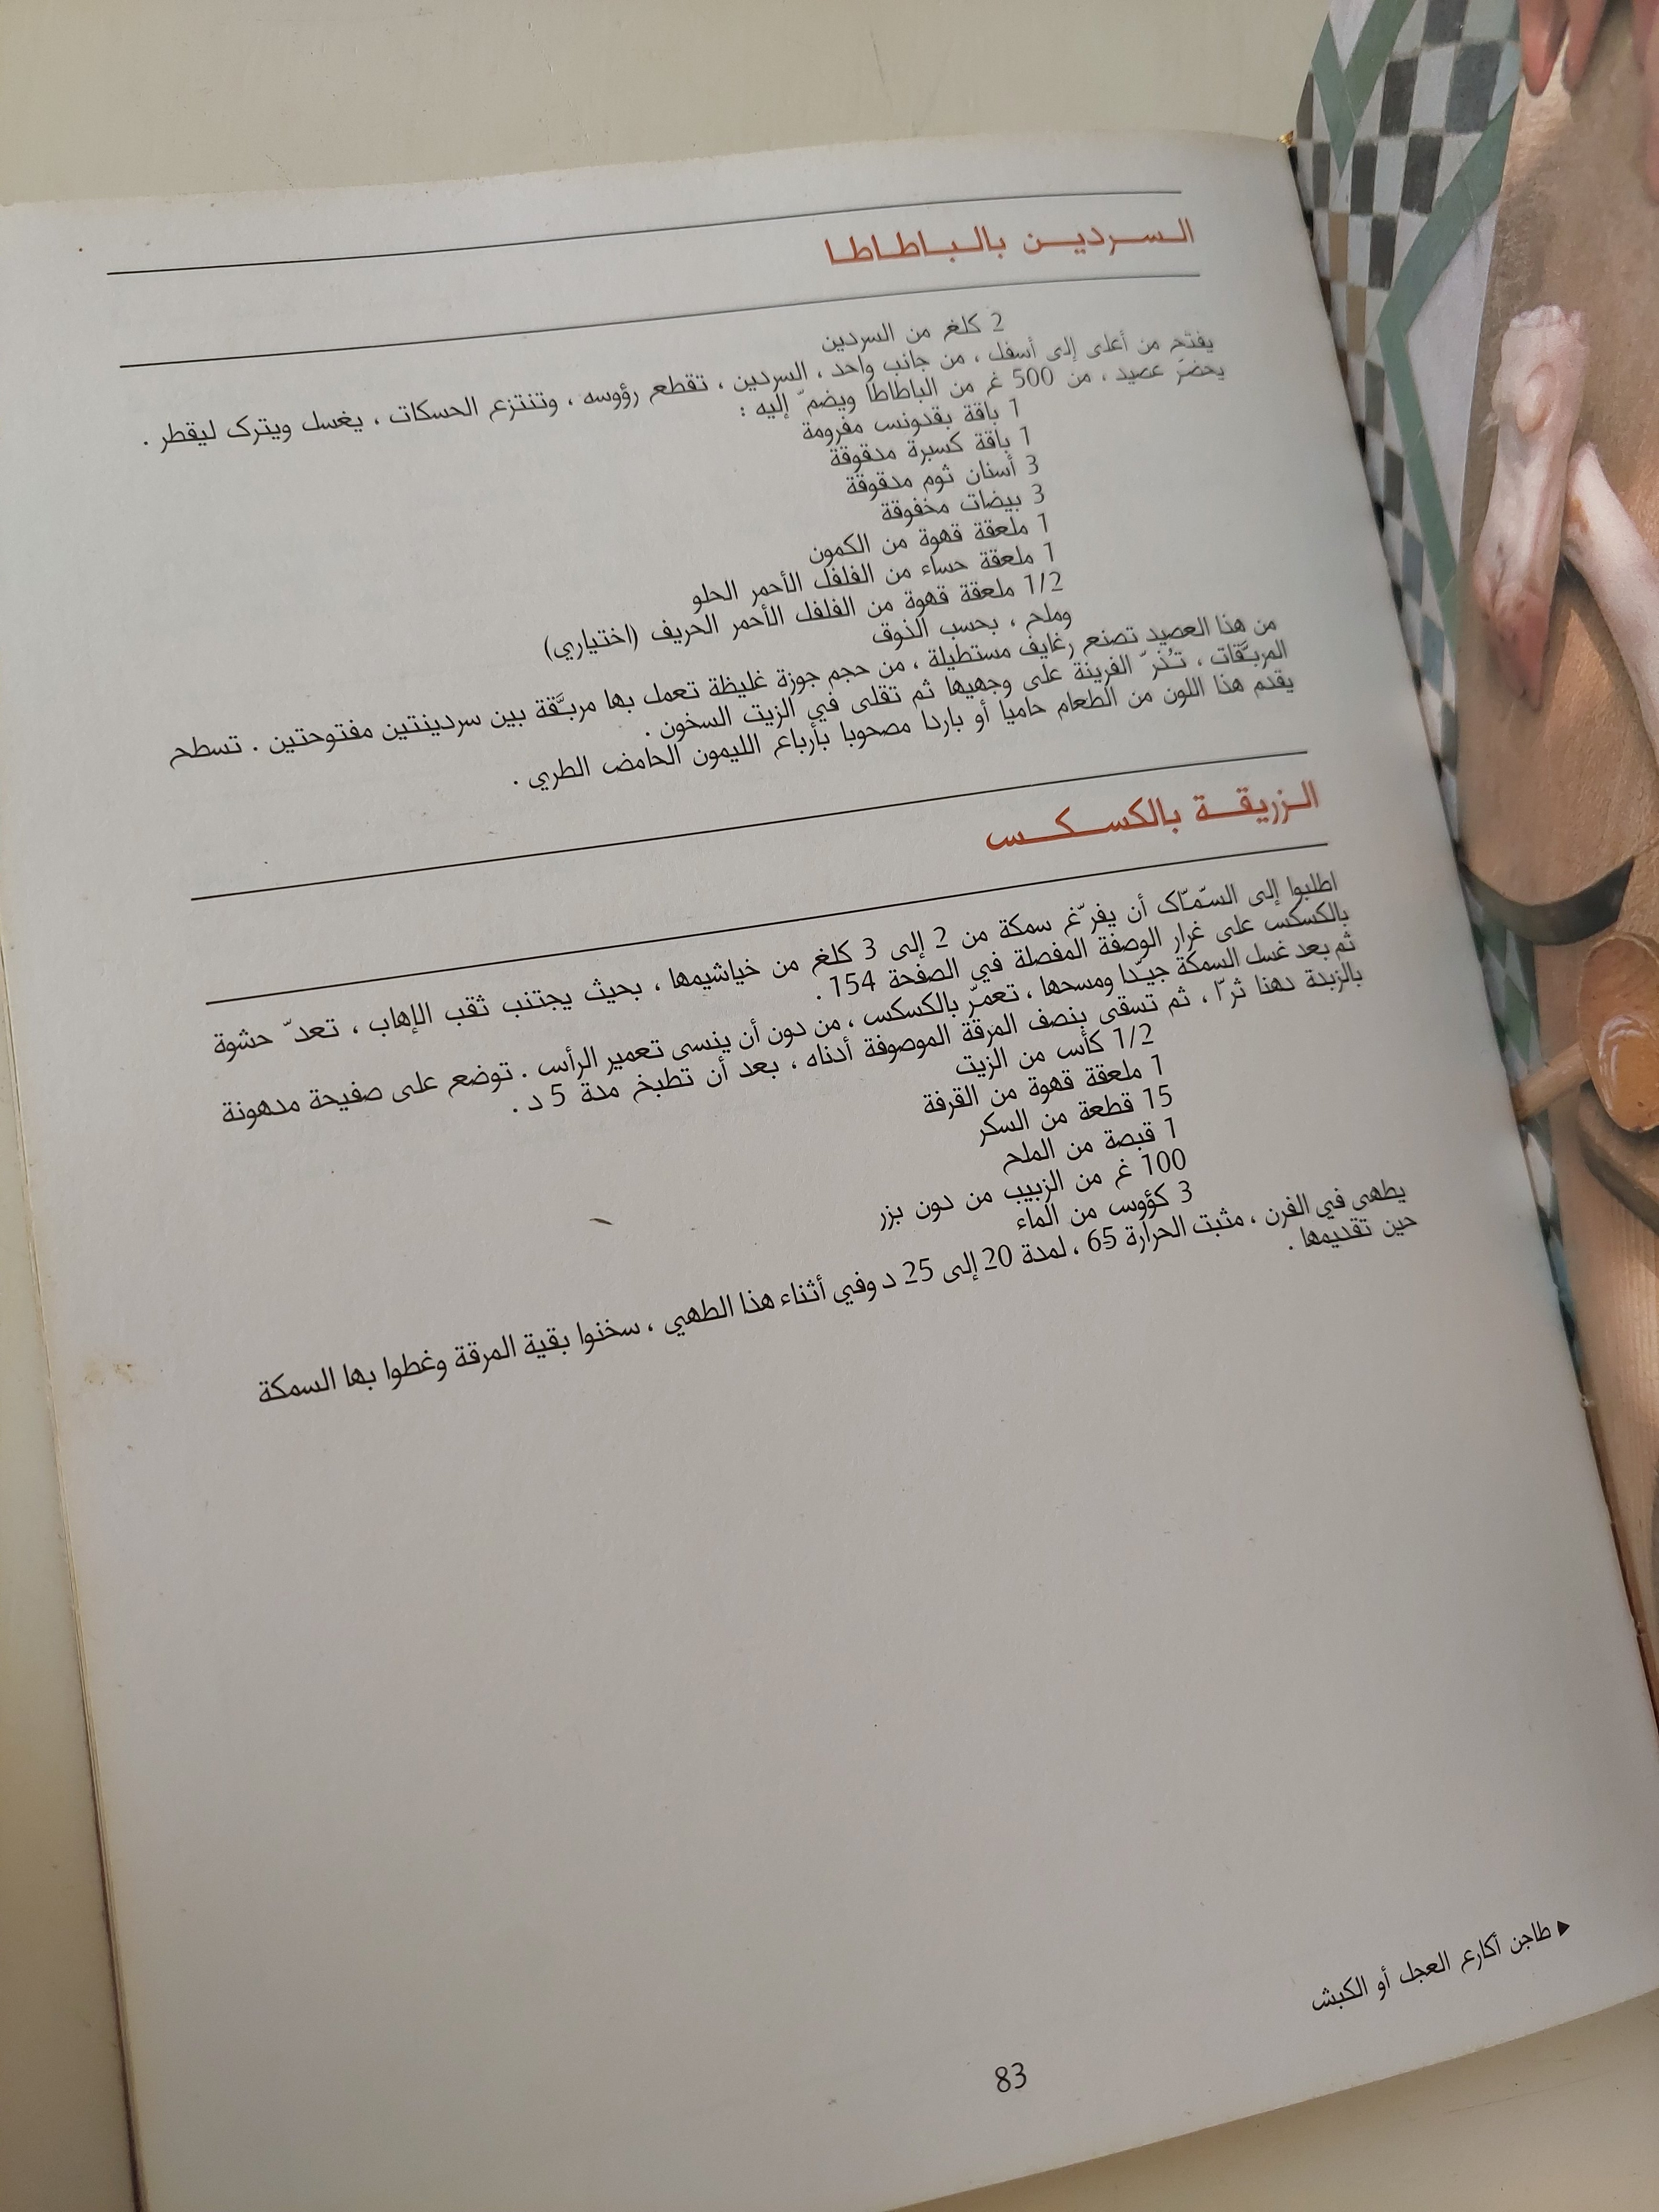 السردين بالباطاطا
2 كلغ من السردين
يفتح من أعلى إلى أسفل ، من جانب واحد ، السردين ، تقطع رؤوسه ، وتنتزع الحسكات ، يغسل ويترك ليقطر .
يحضّر عصيد ، من 500 غ من الباطاطا ويضمّ إليه :
1 باقة بقدونس مفرومة
1 باقة كسبرة مدقوقة
3 أسنان ثوم مدقوقة
3 بيضات مخفوقة
1 ملعقة قهوة من الكمون
1 ملعقة حساء من الفلفل الأحمر الحلو
1/2 ملعقة قهوة من الفلفل الأحمر الحريف (اختياري)
وملح ، بحسب الذوق
من هذا العصيد تصنع رغايف مستطيلة ، من حجم جوزة غليظة تعمل بها مربـَّقة بين سردينتين مفتوحتين . تسطح
المربـَّقات ، تـُذرّ الفرينة على وجهيها ثم تقلى في الزيت السخون .
يقدم هذا اللون من الطعام حاميا أو باردا مصحوبا بأرباع الليمون الحامض الطري .
الزريقة بالكسكس
اطلبوا إلى السّمّاك أن يفرّغ سمكة من 2 إلى 3 كلغ من خياشيمها ، بحيث يجتنب ثقب الإهاب ، تعدّ حشوة
بالكسكس على غرار الوصفة المفصلة في الصفحة 154 .
ثم بعد غسل السمكة جيـّدا ومسحها ، تعمرّ بالكسكس ، من دون أن ينسى تعمير الرأس . توضع على صفيحة مدهونة
بالزبدة دهنا ثرّا ، ثم تسقى بنصف المرقة الموصوفة أدناه ، بعد أن تطبخ مدة 5 د .
1/2 كأس من الزيت
1 ملعقة قهوة من القرفة
15 قطعة من السكر
1 قبصة من الملح
100 غ من الزبيب من دون بزر
3 كؤوس من الماء
يطهى في الفرن ، مثبت الحرارة 65 ، لمدة 20 إلى 25 د وفي أثناء هذا الطهي ، سخنوا بقية المرقة وغطوا بها السمكة
حين تقديمها .
◀ طاجن أكارع العجل أو الكبش
83